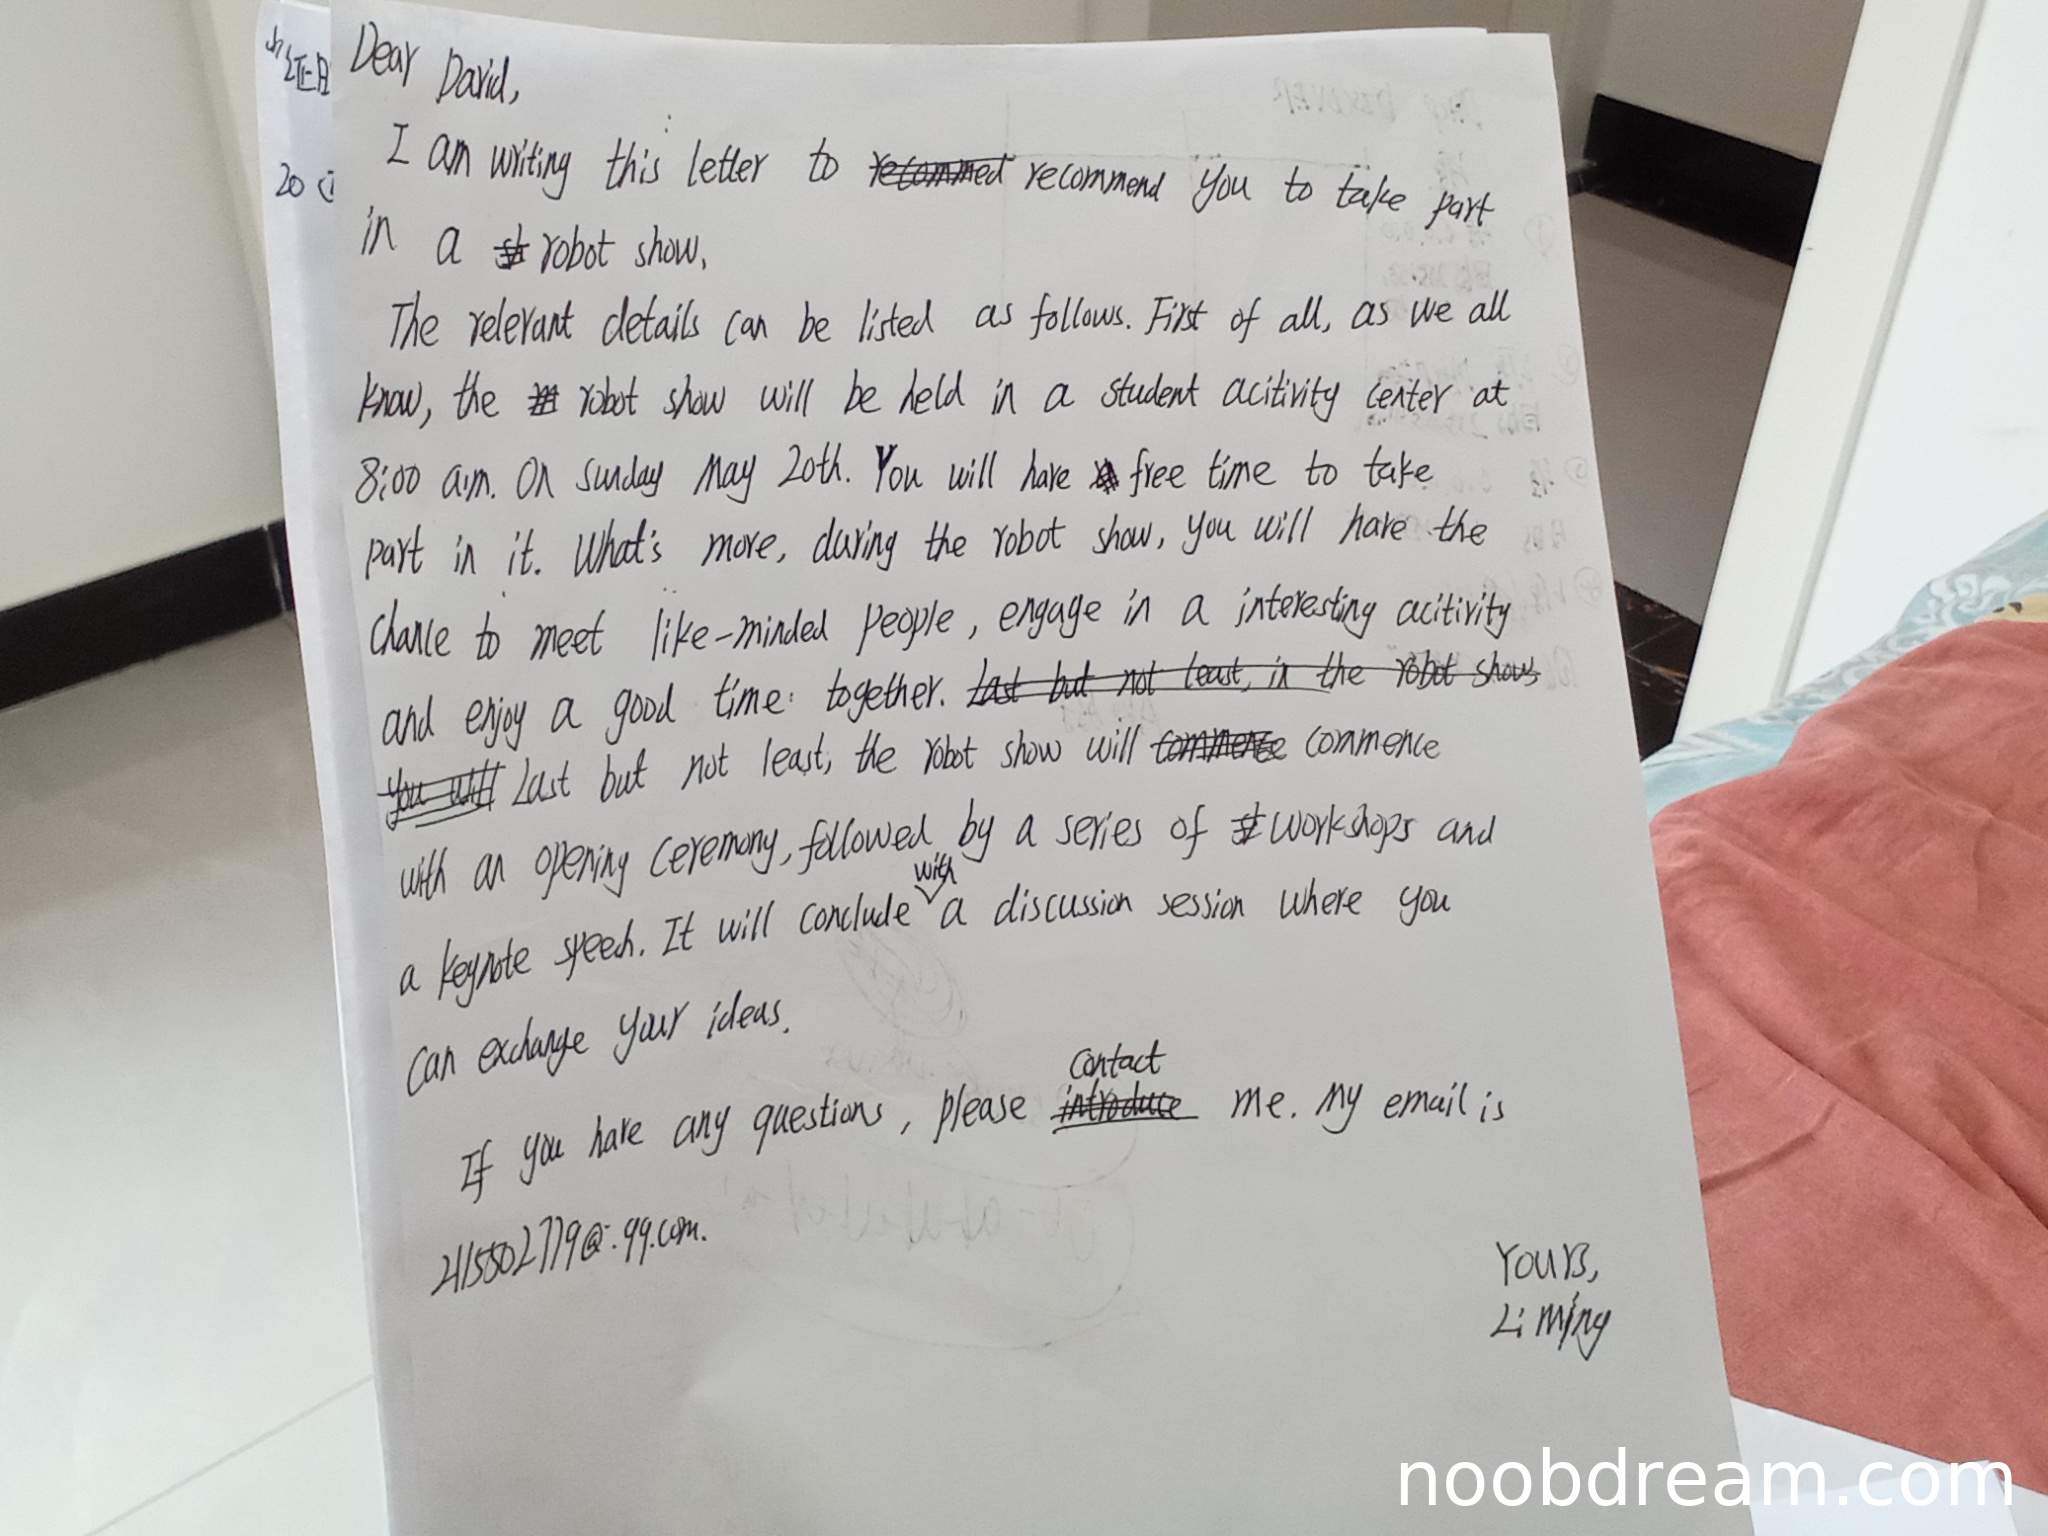 Dear David,
I am writing this letter to recommed recommend you to take part
in a robot show.
The relevant details can be listed as follows. First of all, as we all
know, the robot show will be held in a student acitivity center at
8:00 a.m. On Sunday May 20th. You will have free time to take
part in it. What's more, during the robot show, you will have the
chance to meet like-minded people, engage in a interesting acitivity
and enjoy a good time together. Last but not least, in the robot show,
you will Last but not least, the robot show will commence commence
with an opening ceremony, followed by a series of workshops and
a keynote speech. It will conclude with a discussion session where you
can exchange your ideas.
If you have any questions, please introduce contact me. My email is
@qq.com.
Yours,
Li Ming
20
noobdream.com